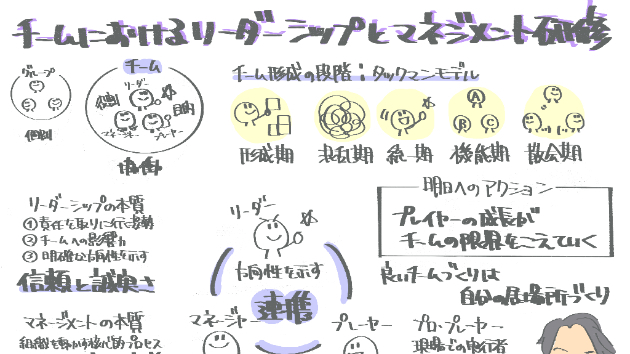 チームにおけるリーダーシップとマネジメント研修
グループ
個別
チーム
リーダー
役割
目的
マネージャー
プレーヤー
協働
チーム形成の段階：タックマンモデル
形成期
混乱期
統一期
A
B
C
機能期
散会期
リーダーシップの本質
①責任を取りに行く姿勢
②チームへの影響力
③明確な方向性を示す
信頼と誠実さ
マネージメントの本質
リーダー
方向性を示す
連携
マネージャー
プレーヤー
明日へのアクション
プレイヤーの成長が
チームの限界をこえていく
良いチームづくりは
自分の居場所づくり
プロ・プレーヤー
現場での実行者